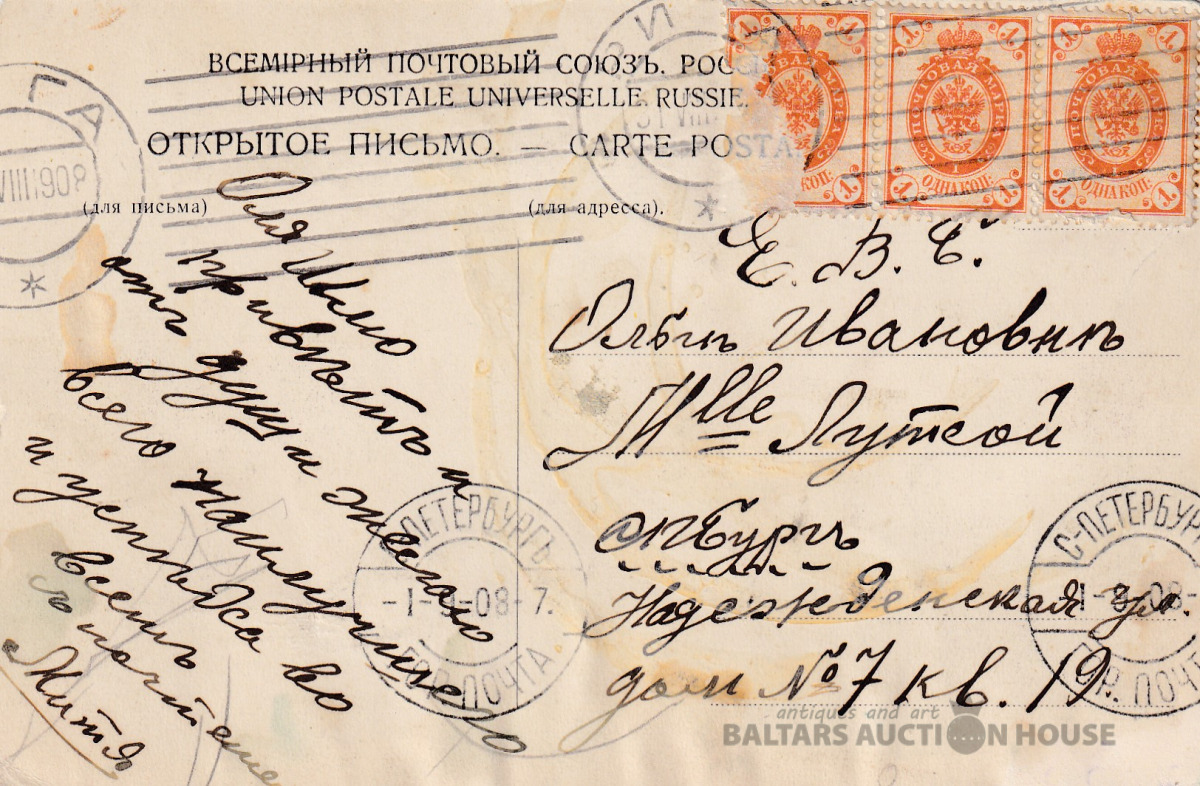 ВСЕМІРНЫЙ ПОЧТОВЫЙ СОЮЗЪ. РОС
UNION POSTALE UNIVERSELLE RUSSIE.
ОТКРЫТОЕ ПИСЬМО. — CARTE POSTA
(для письма)
(для адреса).
РИГА
VIII 1908
РИГА
31 VIII
1 1
ПОЧТОВАЯ МАРКА
1
ОДНА КОП.
1 1
1 1
ПОЧТОВАЯ МАРКА
1
ОДНА КОП.
1 1
Оля Шлю
привѣтъ и
отъ души желаю
всего наилучшаго
и успѣха во
всемъ
Митя
Е. В. С.
Ольгѣ Ивановнѣ
Mlle Лутсой
СПБургъ
Надежденская ул.
домъ № 7 кв. 19.
С-ПЕТЕРБУРГЪ
-08-7.
ГОР. ПОЧТА
С-ПЕТЕРБУР
08-
ГОР. ПОЧТА
antiques and art
BALTARS AUCTION HOUSE